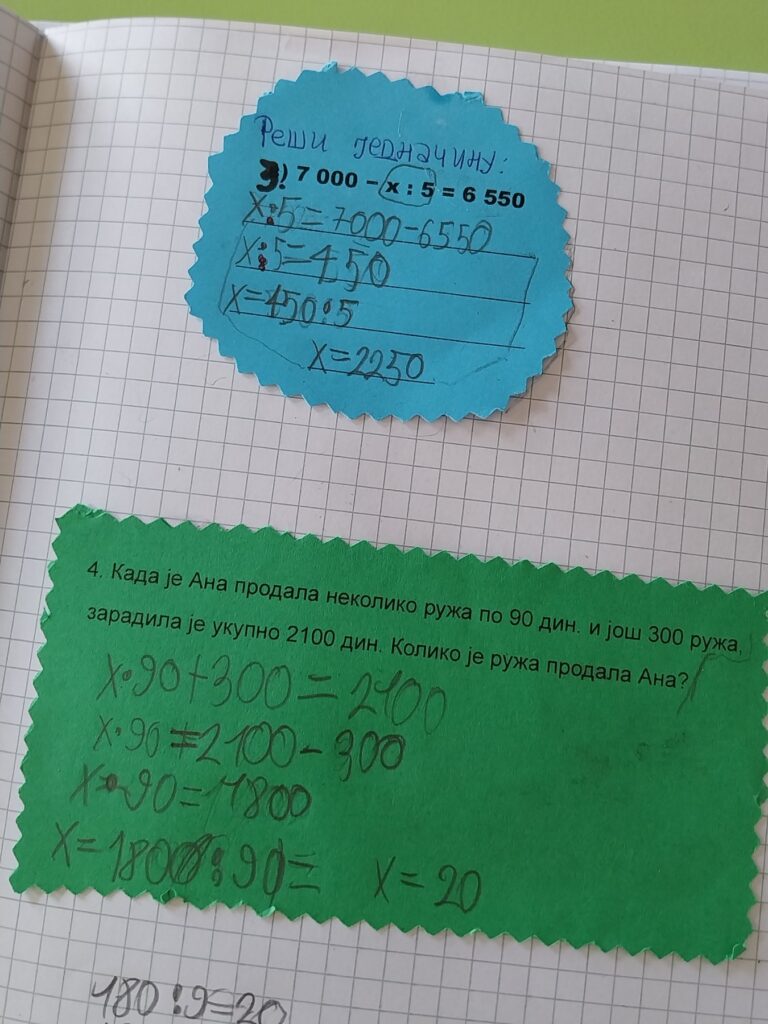 Реши једначину:
3.) 7 000 – x : 5 = 6 550
x:5=7000-6550
x:5=450
x=450:5
x=2250
4. Када је Ана продала неколико ружа по 90 дин. и још 300 ружа,
зарадила је укупно 2100 дин. Колико је ружа продала Ана?
x·90+300=2100
x·90=2100-300
x·90=1800
x=1800:90= x=20
180:9=20